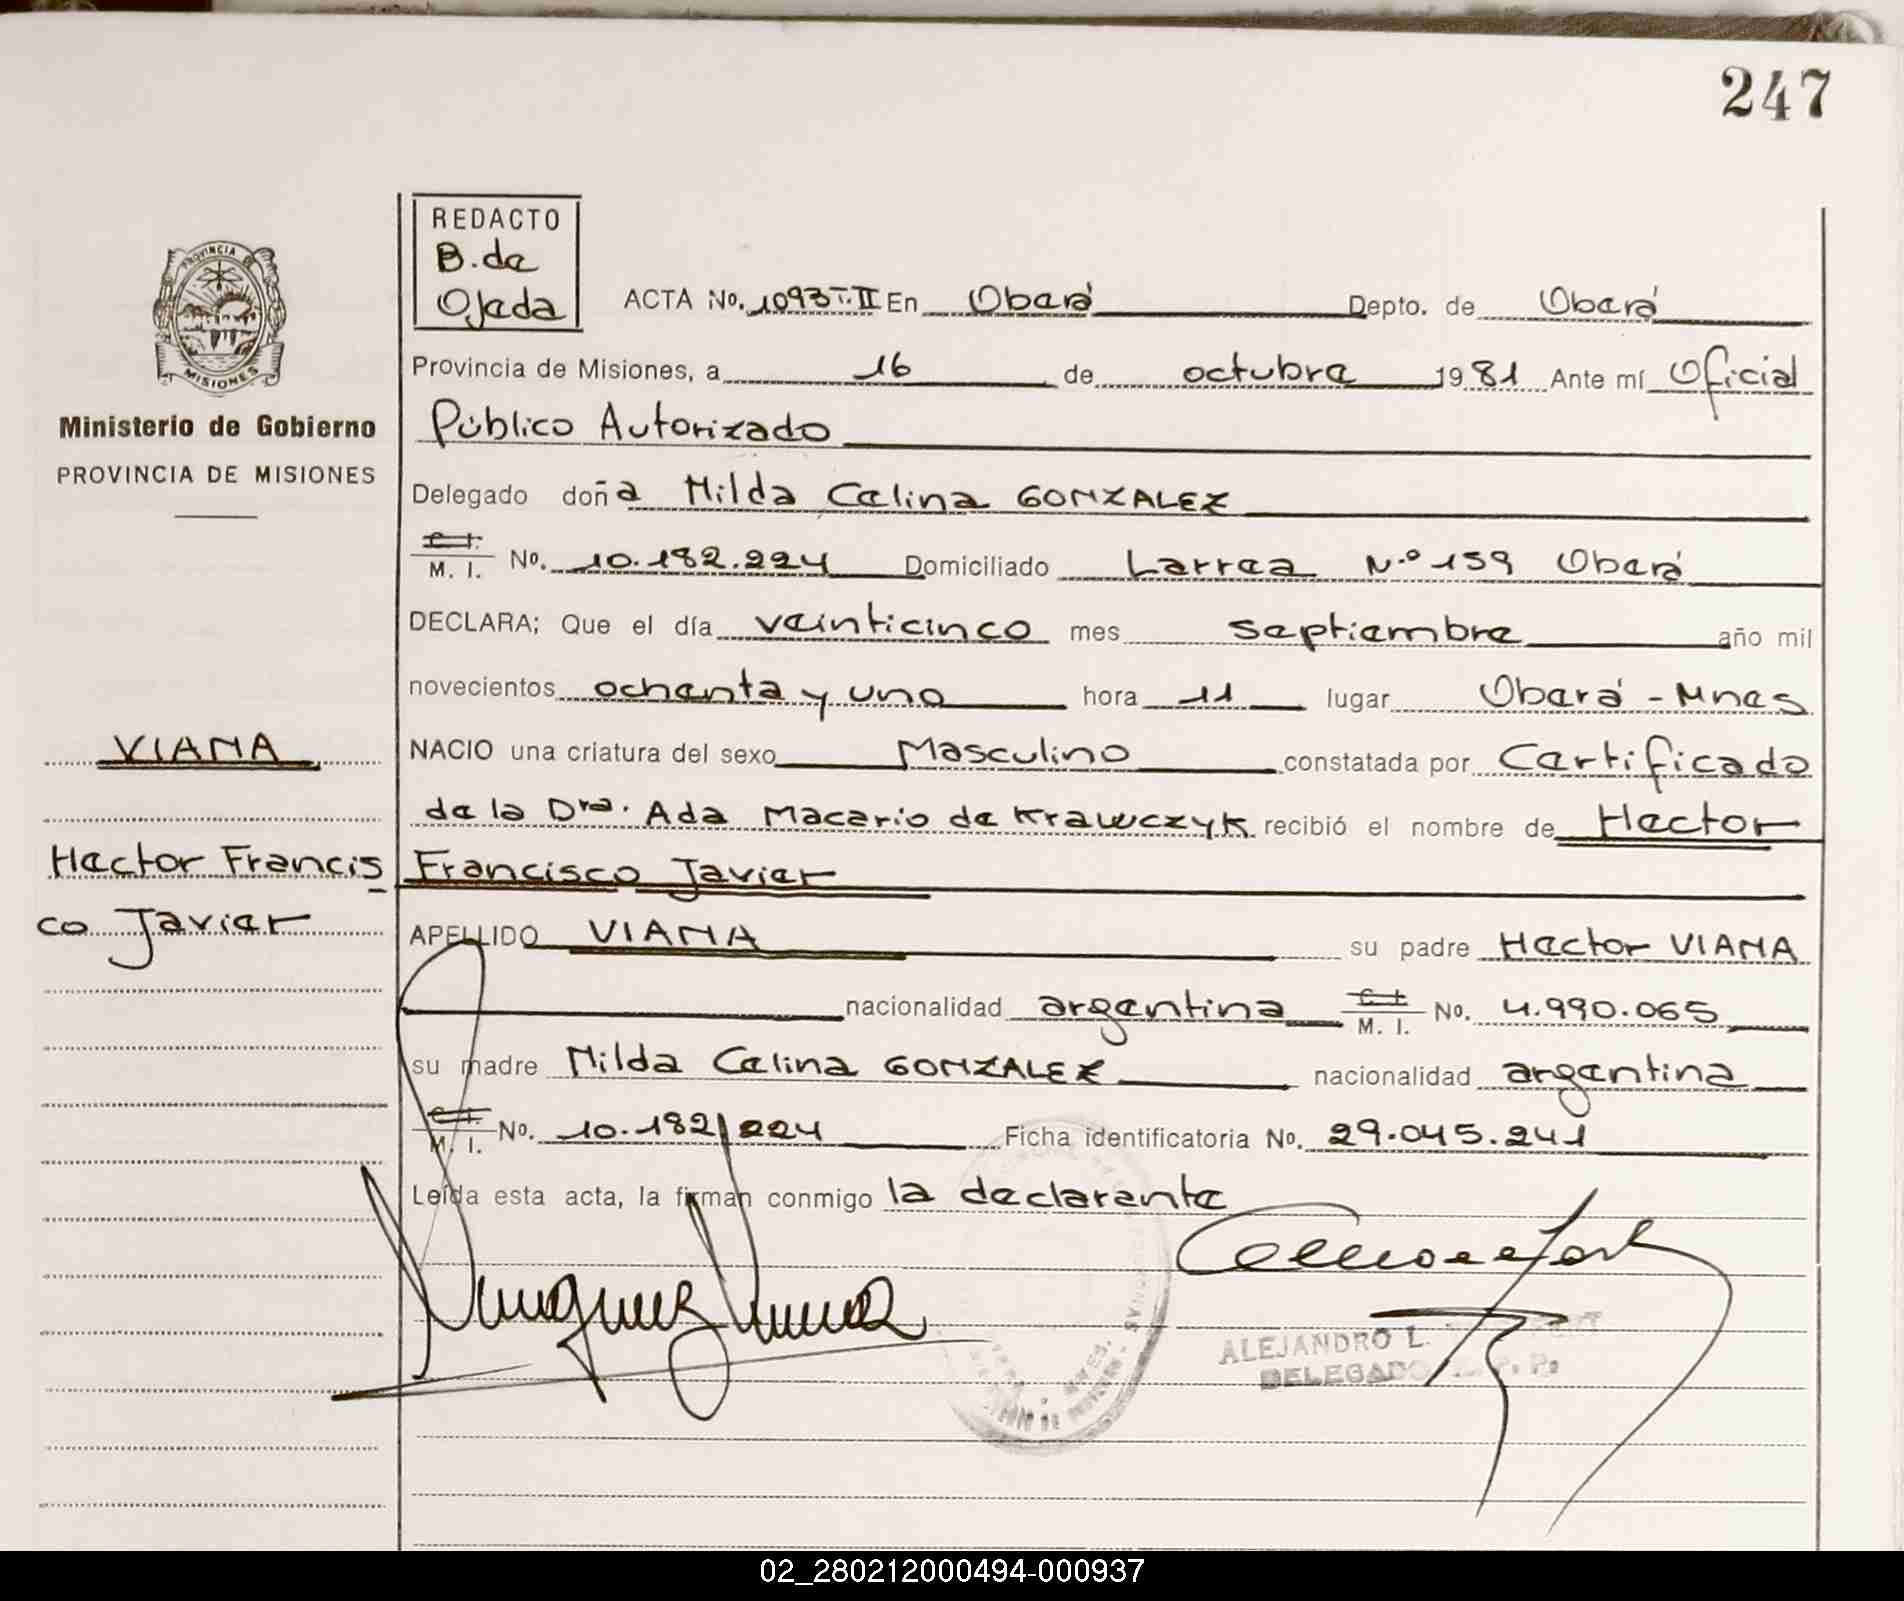 247
REDACTO
B. de
Ojeda
PROVINCIA DE
MISIONES
Ministerio de Gobierno
PROVINCIA DE MISIONES
ACTA No. 1093 T. II En Oberá Depto. de Oberá
Provincia de Misiones, a 16 de octubre 1981 Ante mí Oficial
Público Autorizado
Delegado doña Nilda Celina GONZALEZ
C. I.
M. I. No. 10.182.224 Domiciliado Larrea N.º 159 Oberá
DECLARA; Que el día veinticinco mes septiembre año mil
novecientos ochenta y uno hora 11 lugar Oberá - Mnes
NACIO una criatura del sexo Masculino constatada por Certificado
de la Dra. Ada Macario de Krawczyk recibió el nombre de Hector
Francisco Javier
APELLIDO VIANA su padre Hector VIANA
nacionalidad argentina C. I.
M. I. No. 4.990.065
su madre Nilda Celina GONZALEZ nacionalidad argentina
C. I.
M. I. No. 10.182/224 Ficha identificatoria No. 29.045.241
Leída esta acta, la firman conmigo la declarante
VIANA
Hector Francis
co Javier
ALEJANDRO L.
DELEGADO
02_280212000494-000937